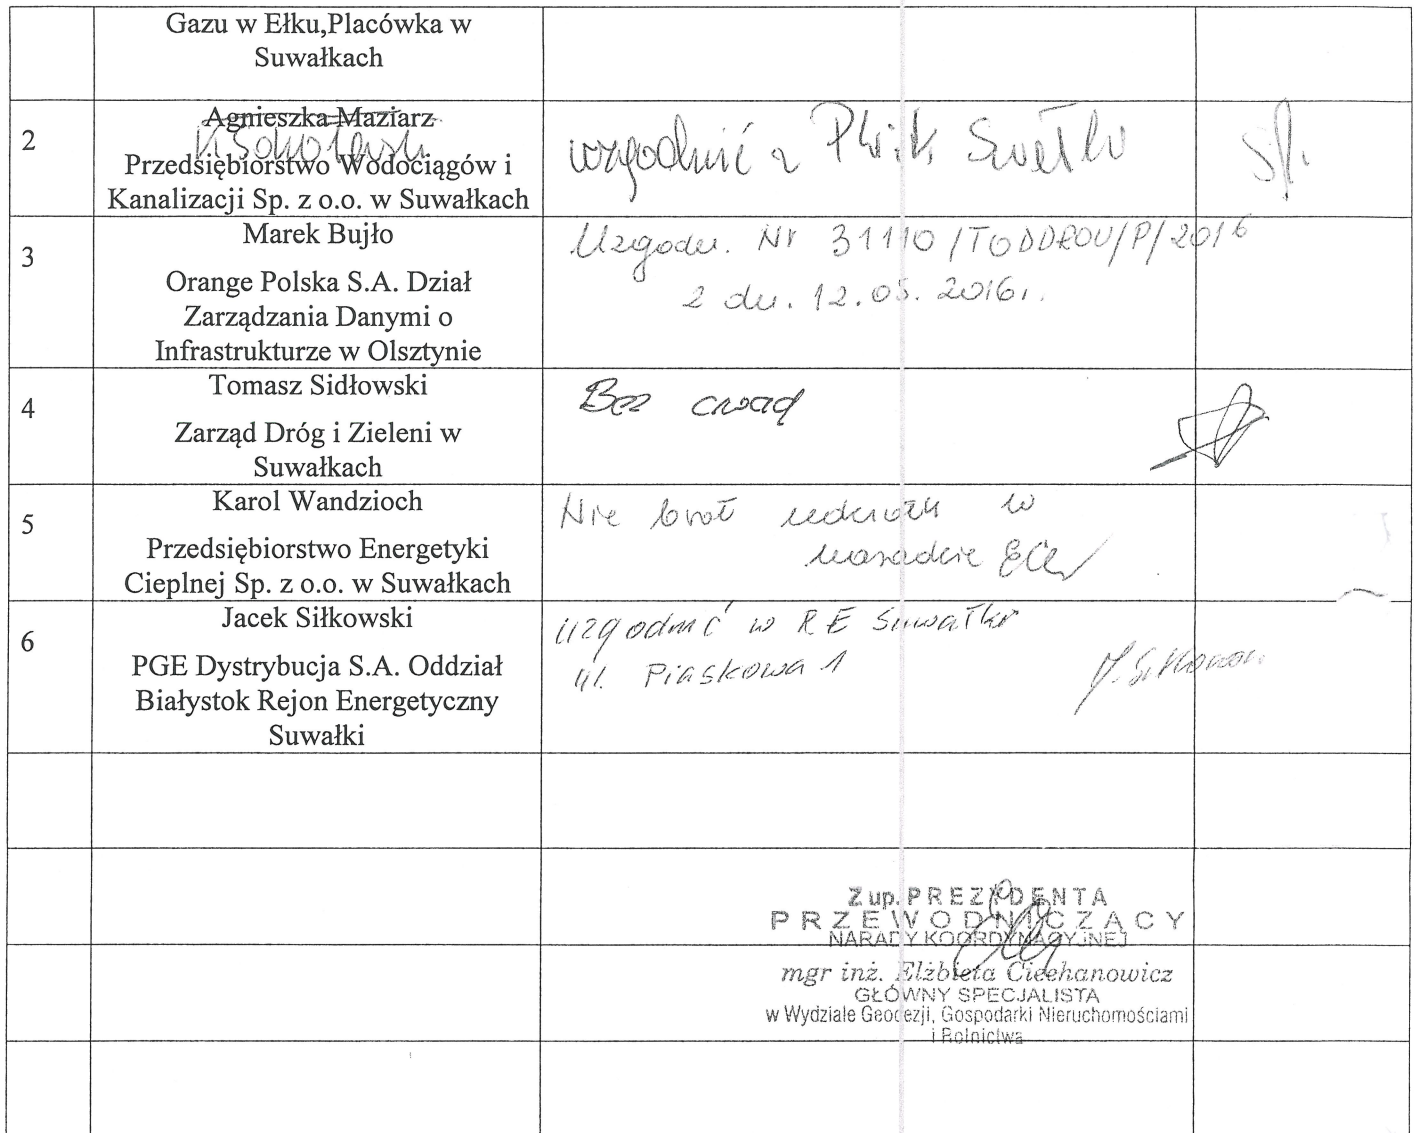 Gazu w Ełku,Placówka w
Suwałkach
2
Agnieszka Maziarz
Przedsiębiorstwo Wodociągów i
Kanalizacji Sp. z o.o. w Suwałkach
uzgodnić z PWiK
3
Marek Bujło
Orange Polska S.A. Dział
Zarządzania Danymi o
Infrastrukturze w Olsztynie
Uzgodn. Nr 31110/TODDROU/P/2016
z dn. 12.05.2016r.
4
Tomasz Sidłowski
Zarząd Dróg i Zieleni w
Suwałkach
Bez uwag
5
Karol Wandzioch
Przedsiębiorstwo Energetyki
Cieplnej Sp. z o.o. w Suwałkach
Nie brał udziału w
naradzie
6
Jacek Siłkowski
PGE Dystrybucja S.A. Oddział
Białystok Rejon Energetyczny
Suwałki
uzgodnić w RE Suwałki
ul. Piaskowa 1
Z up. PREZYDENTA
PRZEWODNICZĄCY
NARADY KOORDYNACYJNEJ
mgr inż. Elżbieta Ciechanowicz
GŁÓWNY SPECJALISTA
w Wydziale Geodezji, Gospodarki Nieruchomościami
i Rolnictwa